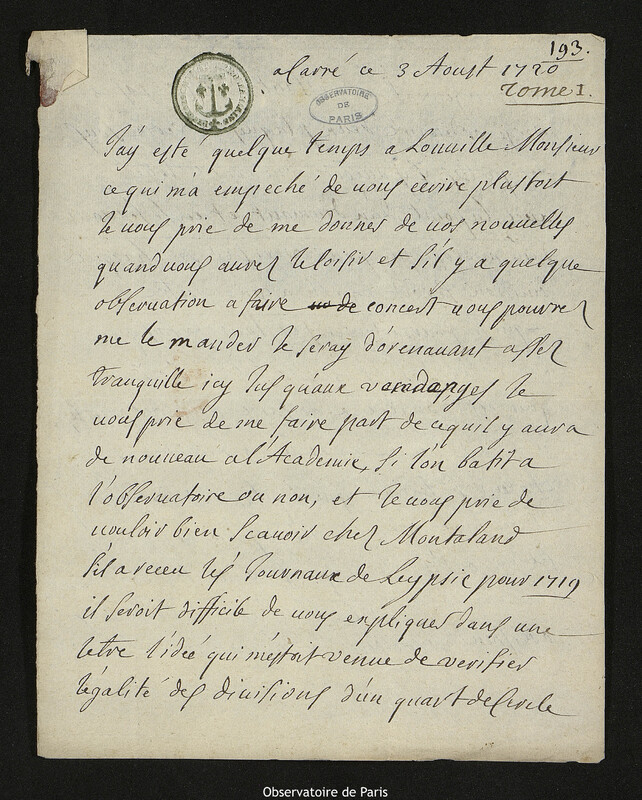 193.
a Carré ce 3 Aoust 1720
Tome I.
OBSERVATOIRE
DE
PARIS
J'ay esté quelque temps a Louville Monsieur
ce qui m'a empeché de vous ecrire plustost
Je vous prie de me donner de vos nouvelles
quand vous aurez le loisir et s'il y a quelque
observation a faire de concert vous pourrez
me le mander Je seray d'orenavant assez
tranquille icy jusqu'aux vandanges Je
vous prie de me faire part de ce quil y aura
de nouveau a l'Academie, si l'on batit a
l'observatoire ou non, et Je vous prie de
vouloir bien scavoir chez Montaland
s'il a receu les Journaux de Leypsic pour 1719
il seroit difficile de vous expliquer dans une
letre l'idée qui m'estoit venue de verifier
l'egalité des divisions d'un quart de Cercle
Observatoire de Paris